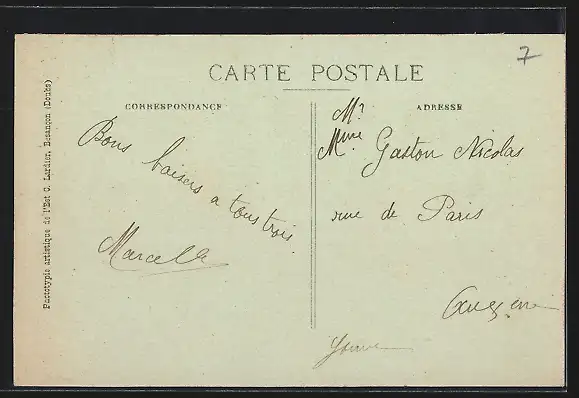 7
CARTE POSTALE
CORRESPONDANCE
ADRESSE
Bons baisers a tous trois
Marcelle
Mr
Mme Gaston Nicolas
rue de Paris
Auxerre
Yonne
Phototypie artistique de l'Est C. Lardier, Besançon (Doubs)